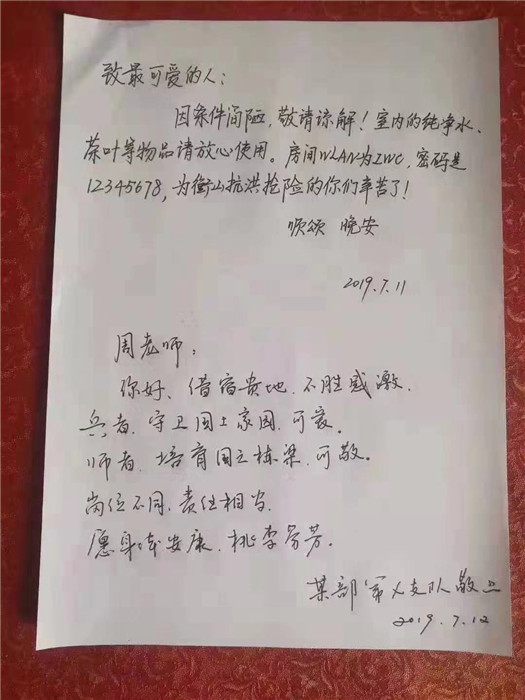 致最可爱的人：
因条件简陋，敬请谅解！室内的纯净水、
茶叶等物品请放心使用。房间WLAN为ZWC，密码是
12345678，为衡山抗洪抢险的你们辛苦了！
顺颂 晚安
2019.7.11
周老师：
你好、借宿贵地、不胜感激、
兵者、守卫国土家园、可爱。
师者、培育国之栋梁、可敬。
岗位不同、责任相当、
愿身体安康、桃李芬芳、
某部第 支队敬上
2019.7.12